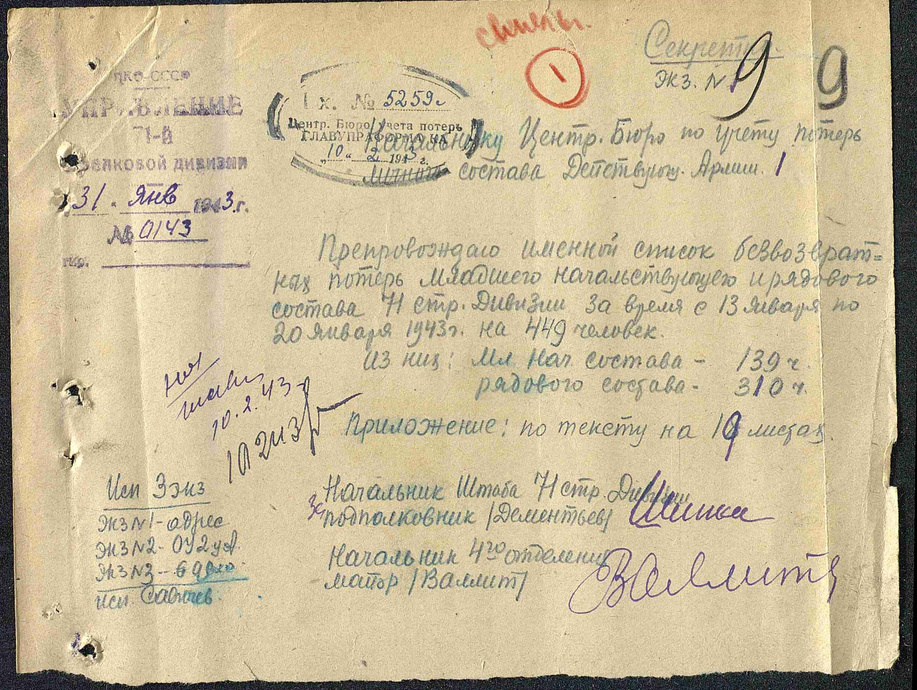 Секретно.
экз. № 1
9
9
1
НКО-СССР
УПРАВЛЕНИЕ
71-й
стрелковой дивизии
31 . Янв 1943 г.
№ 0143
гор.
Вх. № 5259с
Центр. Бюро учета потерь
10 . 2 1943 г.
Начальнику Центр. Бюро по учету потерь
личного состава Действующ. Армии. 1
Препровождаю именной список безвозврат=
ных потерь младшего начальствующего и рядового
состава 71 стр. Дивизии за время с 13 января по
20 января 1943г. на 449 человек.
из них: Мл. Нач. состава - 139 ч.
рядового состава - 310 ч.
10.2.43
Приложение: по тексту на 19 листах.
Исп 3 экз
экз №1 - адрес
экз №2 - ОУ2УА
экз №3 - в дело
исп Савичев.
Начальник Штаба 71 стр. Дивизии
подполковник /Дементьев/
Начальник 4го отделения
майор /Валлит/